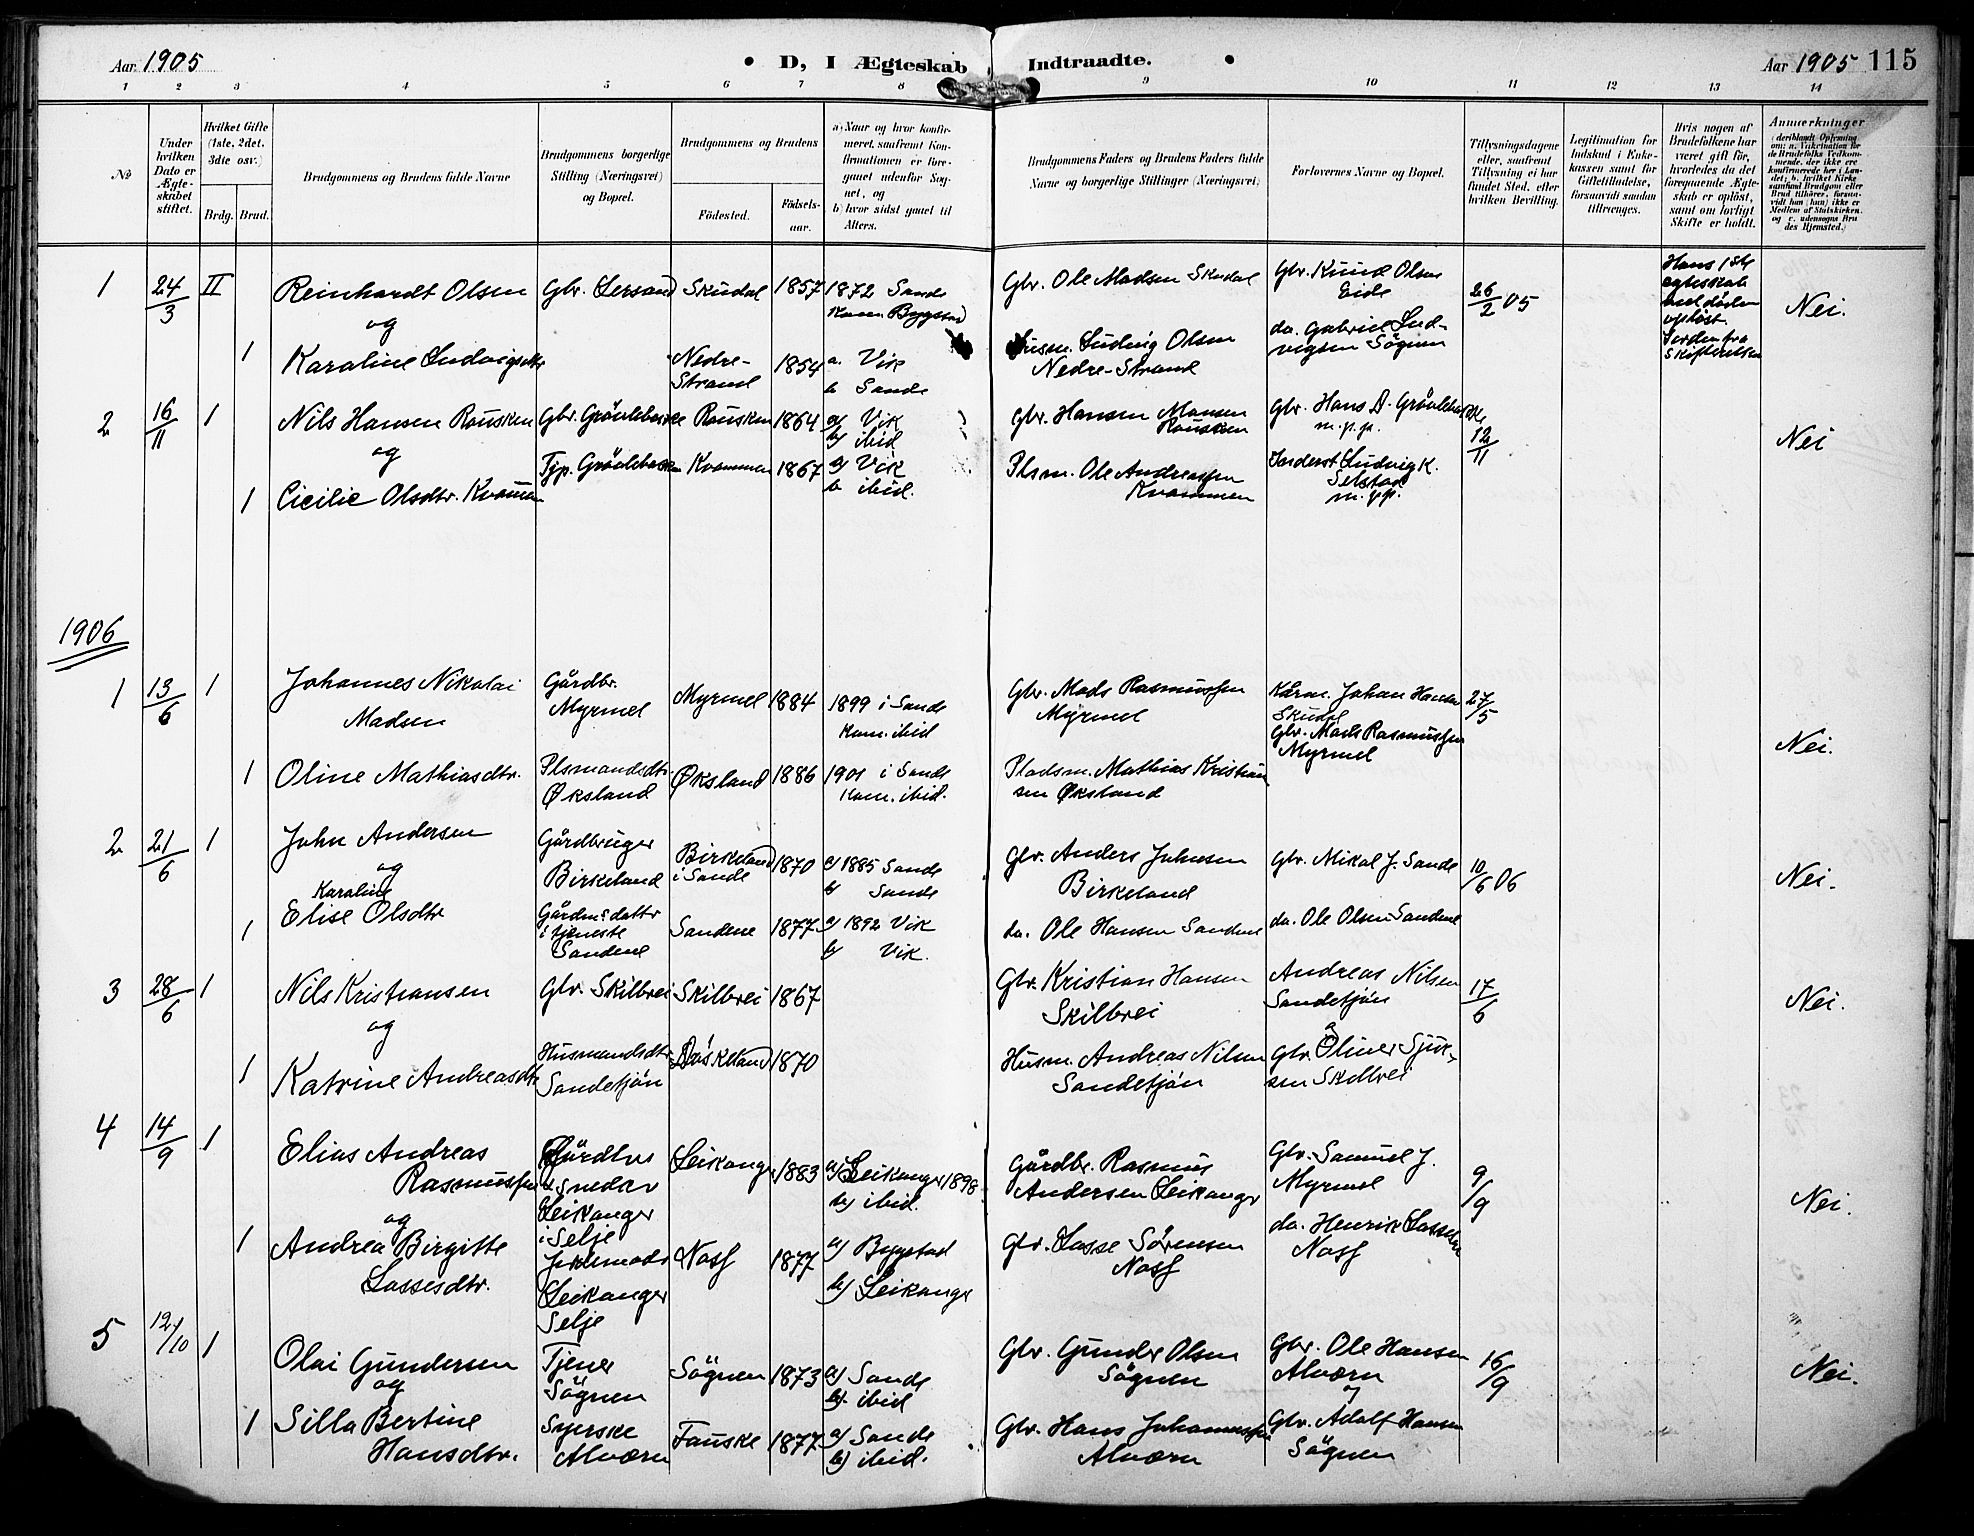 Aar 1905 • D, I Ægteskab Indtraadte. • Aar 1905 115
1 2 3 4 5 6 7 8 9 10 11 12 13 14
№
Under hvilken Dato er Ægteskabet stiftet.
Hvilket Gifte (1ste, 2det, 3die osv.)
Brdg. Brud.
Brudgommens og Brudens fulde Navne
Brudgommens borgerlige Stilling (Næringsvei) og Bopæl.
Brudgommens og Brudens
Fødested. Fødselsaar.
a) Naar og hvor konfirmeret, saafremt Konfirmationen er foregaaet udenfor Sognet, og
b) hvor sidst gaaet til Alters.
Brudgommens Faders og Brudens Faders fulde Navne og borgerlige Stillinger (Næringsvei)
Forlovernes Navne og Bopæl.
Tillysningsdagene eller, saafremt Tillysning ei har fundet Sted, efter hvilken Bevilling.
Legitimation for Indskud i Enkekassen samt for Giftetilladelse, forsaavidt saadan tiltrænges.
Hvis nogen af Brudefolkene har været gift før, hvorledes da det foregaaende Ægteskab er opløst, samt om lovligt Skifte er holdt.
Anmerkninger
(deriblandt Oplysning om: a. Vakcination for de Brudefolks Vedkommende, der ikke ere konfirmerede her i Landet; b. hvilket Kirkesamfund Brudgom eller Brud tilhører, forsaavidt han (hun) ikke er Medlem af Statskirken, og c. udensogns Brudes Hjemsted.)
1 24/3 II Reinhardt Olsen Gbr. Lersand Skudal 1857 1872 Sande
Kom. Bygstad
Gbr. Ole Madsen Skudal
Gbr. Knud Olsen
Eide
26/2 05
Hans 1ste
egteskab
ved døden
opløst.
Nei.
og
1 Karaline Ludvigsdtr
Nedre-
Strand
1854 a. Vik
b Sande
Husm. Ludvig Olsen
Nedre-Strand
do. Gabriel Lud-
vigsen Sögnen
2 16/11 1 Nils Hansen Rousken
Gbr. Grönlebakke Rousken 1864 a) Vik
b) ibid
Gbr. Hansen
Rousken
Gbr. Hans D. Grönlebakke
m.p.p.
12/11
Nei
og
1 Cicilie Olsdtr. Kvammen
Kvammen 1867 a) Vik
b ibid.
Plsm. Ole Andreassen
Kvammen
Inderst Ludvig K.
Selstad
m.p.p.
1906
1 13/6 1 Johannes Nikolai
Madsen
Gårdbr.
Myrmel
Myrmel 1884 1899 i Sande
Kom. ibid
Gbr. Mads Rasmussen
Myrmel
Kårm. Johan Hansen
Skudal
Gbr. Mads Rasmussen
Myrmel
27/5
Nei.
1 Oline Mathiasdtr.
Plsmandsdtr.
Øksland
Øksland 1886 1901 i Sande
Kom. ibid.
Pladsm. Mathias Kristian
sen Øksland
2 21/6 1 John Andersen
Gårdbruger
Birkeland
Birkeland
i Sande
1870 a) 1885 Sande
b) Sande
Gbr. Anders Johnsen
Birkeland
Gbr. Mikal J. Sande
10/6 06
Nei.
og
Karaline
1 Elise Olsdtr
Gårdm.s datter
i tjeneste
Sandene
Sandene 1877 a) 1892 Vik
b) Vik.
do. Ole Hansen Sandene
do. Ole Olsen Sandene
3 28/6 1 Nils Kristiansen
Gbr. Skilbrei Skilbrei 1867
Gbr. Kristian Hansen
Skilbrei
Andreas Nilsen
Sandetjön
17/6
Nei.
og
1 Katrine Andreasdtr
Husmandsdtr.
Sandetjön
Döskeland 1870
Husm. Andreas Nilsen
Sandetjön
Gbr. Oliner Sjur-
sen Skilbrei
4 14/9 1 Elias Andreas
Rasmussen
Gårdbr
& snedker
Leikanger
i Selje
Leikanger 1883 a) Leikanger 1898
b) ibid.
Gårdbr. Rasmus
Andersen Leikanger
Gbr. Samuel J.
Myrmel
9/9
Nei.
og
1 Andrea Birgitte
Lassesdtr.
Jordemoder
Leikanger
Selje
Nosf 1877 a) Bygstad
b) Leikanger
Gbr. Lasse Sörensen
Nosf
do. Henrik Lassesen
Nosf
5 12/10 1 Olai Gundersen
Tjener
Sögnen
Sögnen 1873 a) Sande
b) ibid
Gbr. Gunder Olsen
Sögnen
Gbr. Ole Hansen
Alværn
16/9
Nei.
og
1 Silla Bertine
Hansdtr.
Syerske
Alværn
Fauske 1877 a) Sande
b) ibid.
Gbr. Hans Johannessen
Alværn
og
Gbr. Adolf Hansen
Sögnen